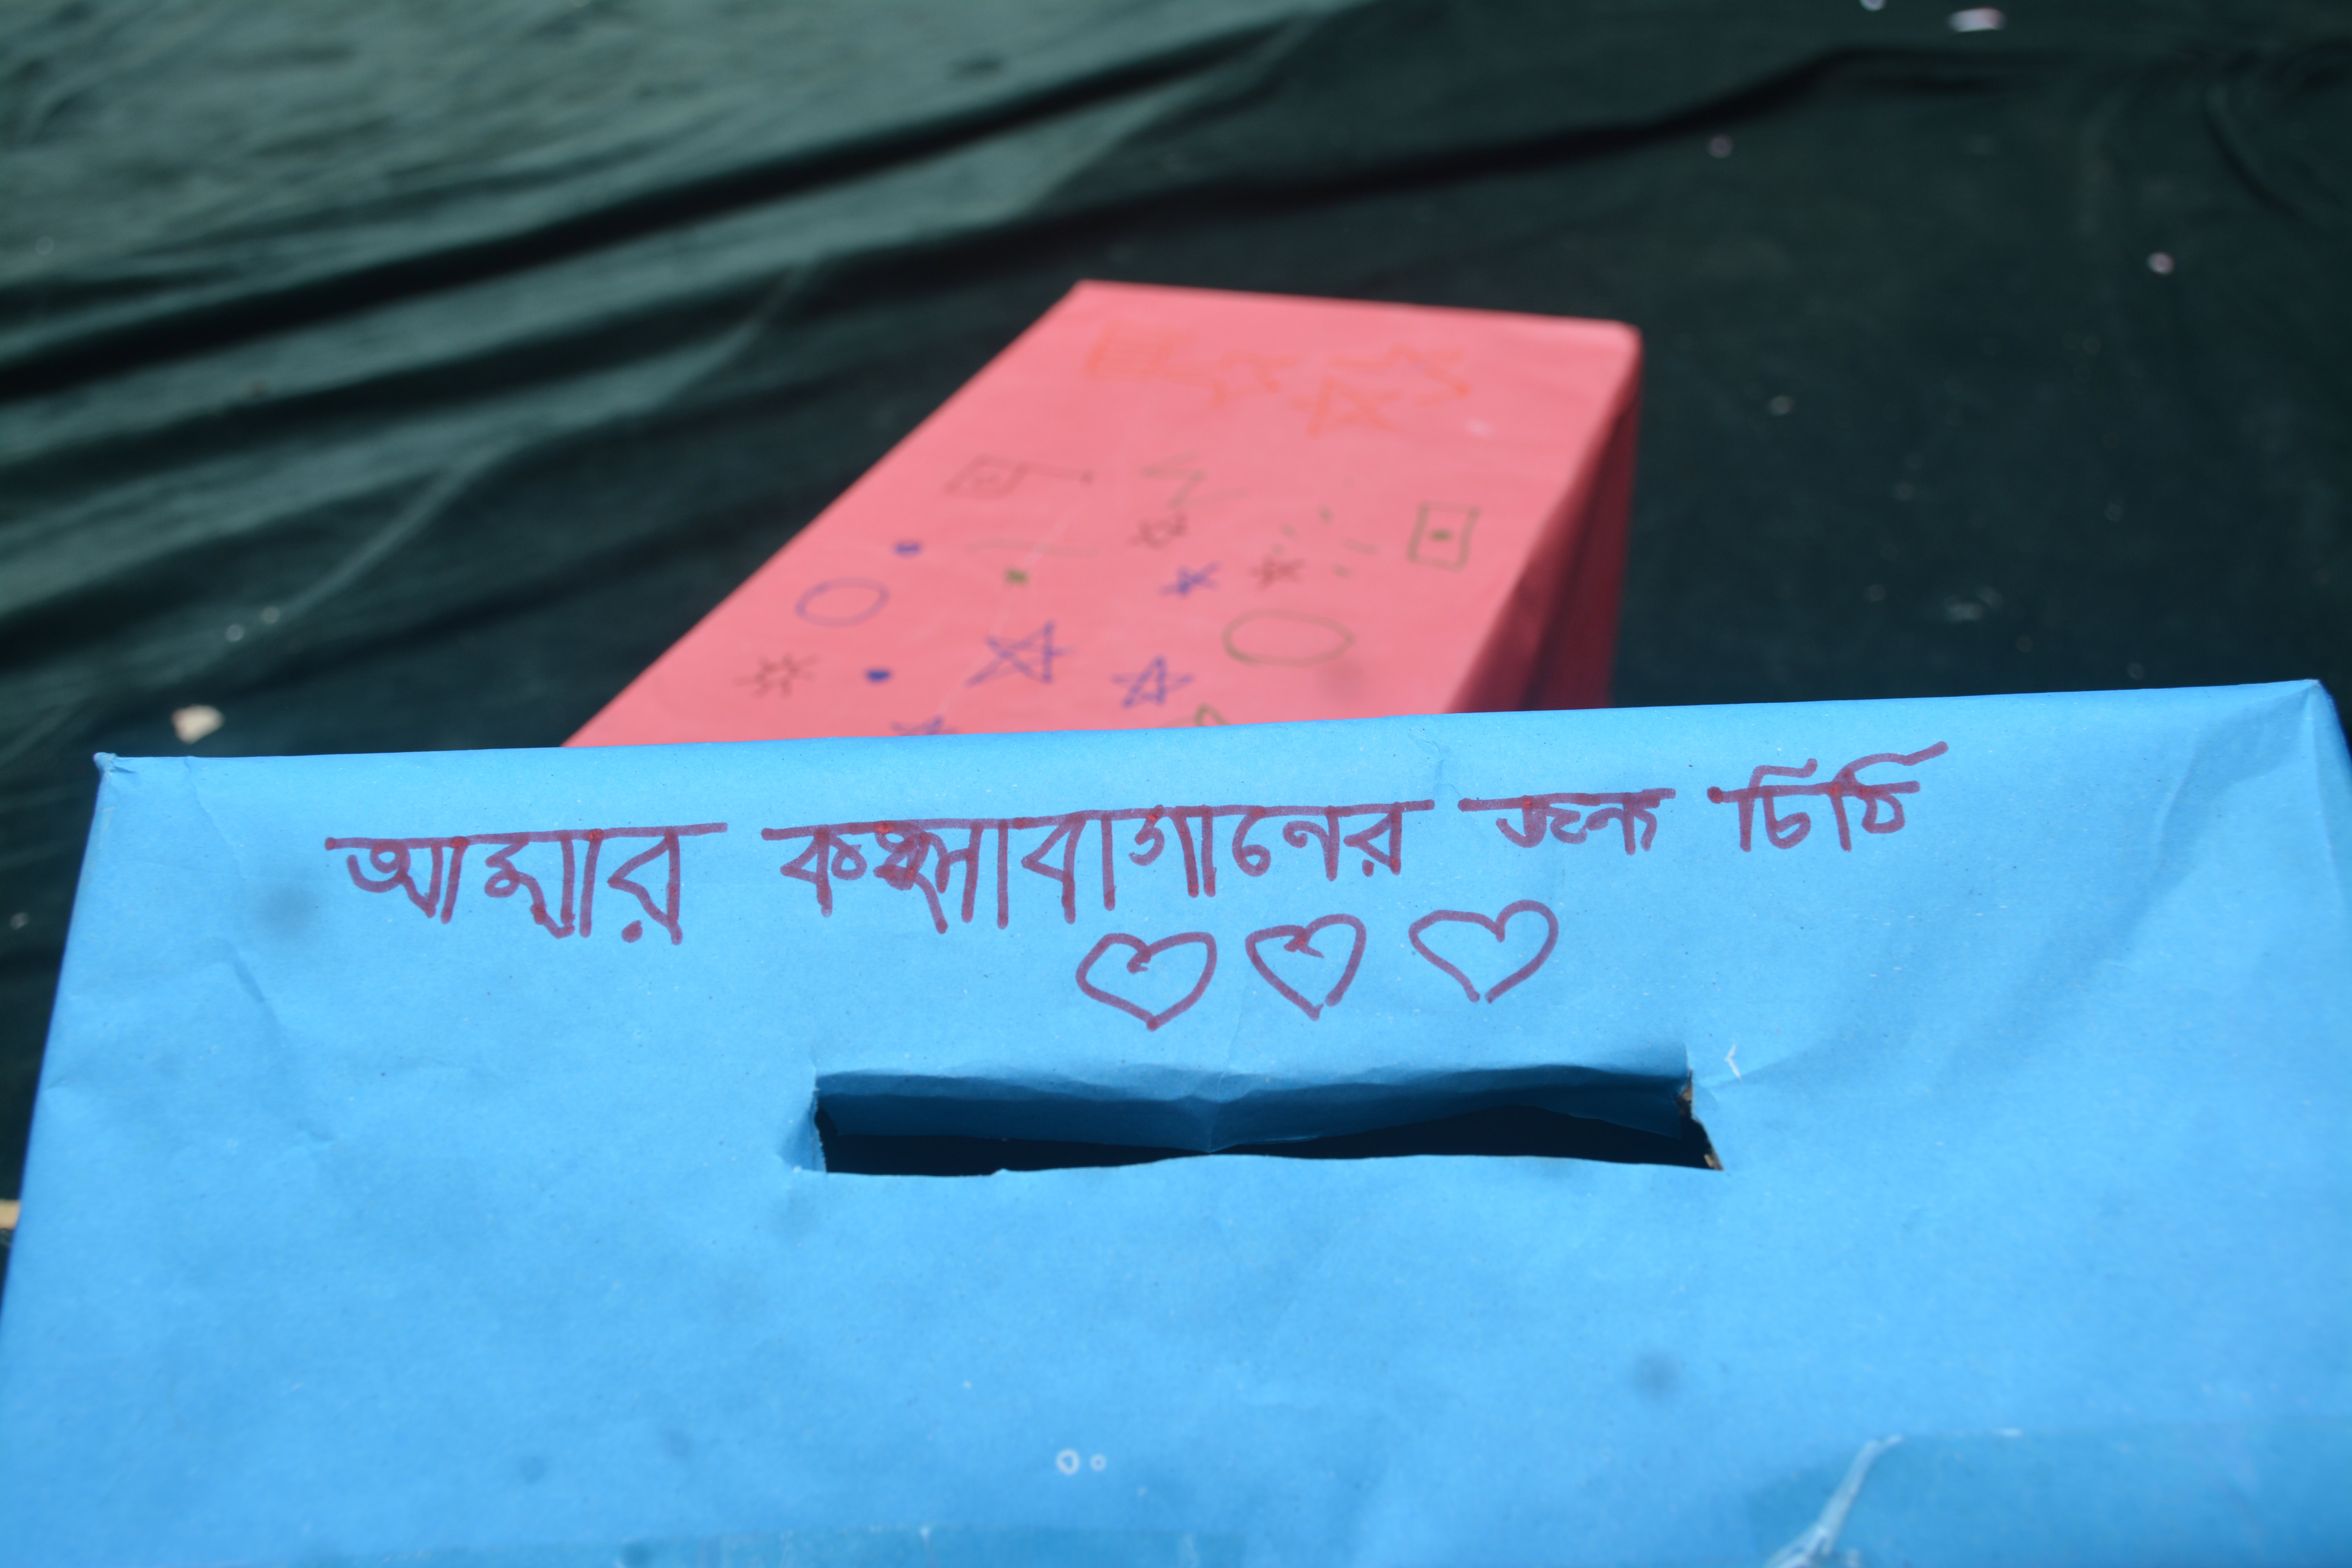 আমার কলাবাগানের জন্য চিঠি